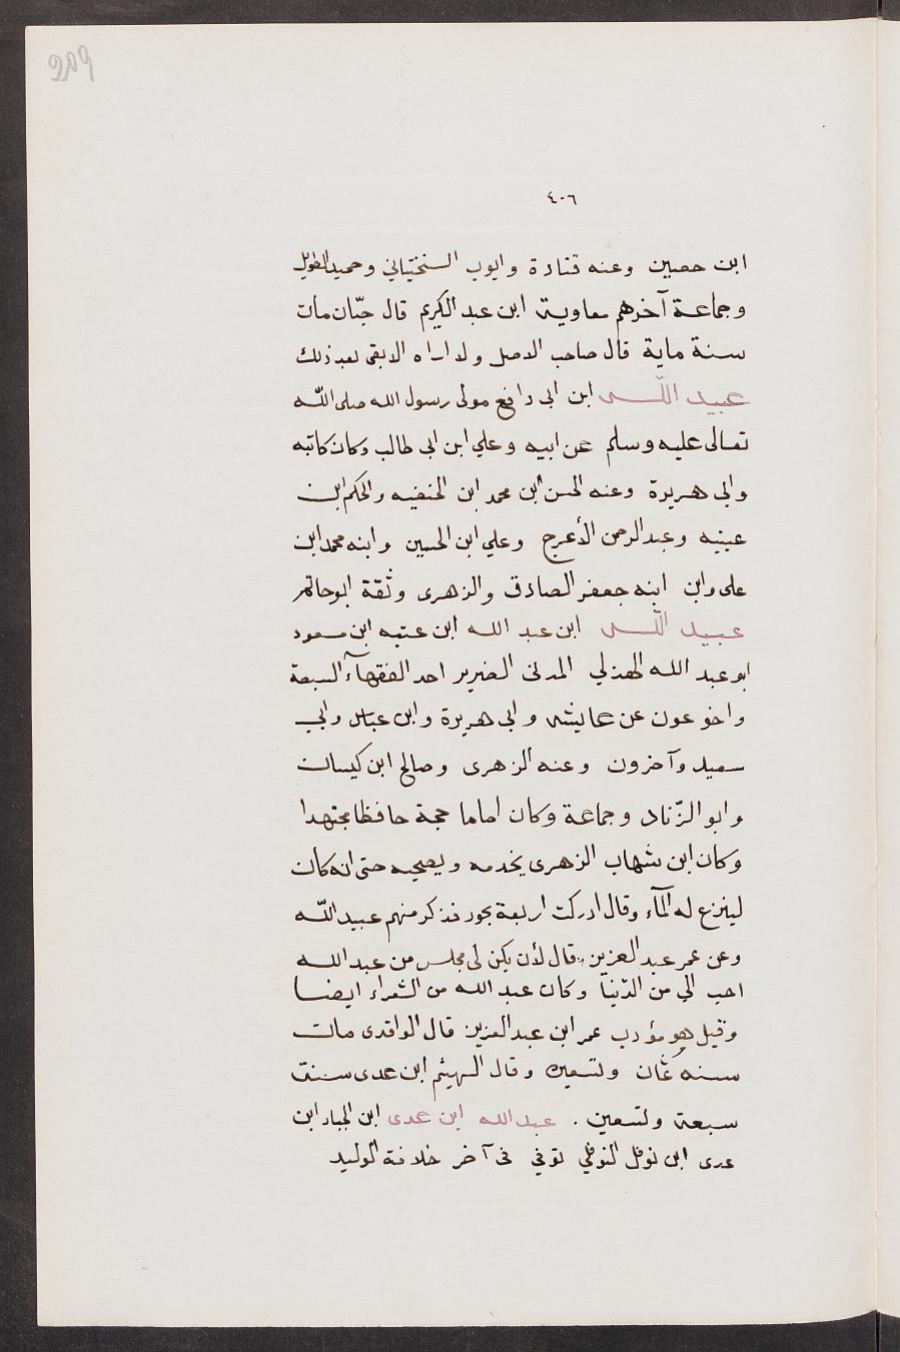 209
٤٠٦
ابن حصين وعنه قتادة وايوب السختياني وحميد الطويل
وجماعة آخرهم معاوية ابن عبد الكريم قال حبّان مات
سنة ماية قال صاحب الاصل ولا اراه الا بقى بعد ذلك
عبيد اللّه ابن ابي رافع مولى رسول الله صلى اللّه
تعالى عليه وسلم عن ابيه وعلي ابن ابي طالب وكان كاتبه
وابي هريرة وعنه الحسن ابن محمد ابن الحنفيه والحكم ابن
عيينه وعبد الرحمن الأعرج وعلي ابن الحسين وابنه محمد ابن
على وابن ابنه جعفر الصادق والزهرى وثقة ابوحاتم
عبيد اللّه ابن عبد الله ابن عتبه ابن مسعود
ابو عبد الله الهذلي المدنى الضرير احد الفقهآء السبعة
واخو عون عن عايشه وابي هريرة وابن عباس وابي
سعيد وآخرون وعنه الزهرى وصالح ابن كيسان
وابو الزّناد وجماعة وكان اماما حجة حافظا مجتهدا
وكان ابن شهاب الزهرى يخدمه ويصحبه حتى انه كان
لينزع له المآء وقال ادركت اربعة بحور فذكر منهم عبيد اللّه
وعن عمر عبد العزيز قال لأن يكن لى مجلس من عبد الله
احب الي من الدّنيا وكان عبد الله من الشعراء ايضا
وقيل هو مؤدب عمر ابن عبد العزيز قال الواقدى مات
سنه ثمان وتسعين وقال الهيثم ابن عدى سنة
سبعة وتسعين . عبد الله ابن عدى ابن الجبار ابن
عدى ابن نوفل النوفلي توفي فى آخر خلافة الوليد